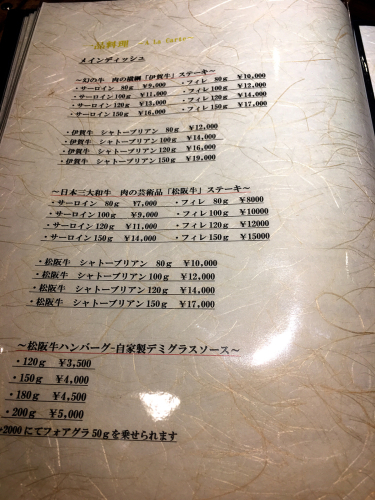 一品料理 A la carte
メインディッシュ
～幻の牛 肉の横綱「伊賀牛」ステーキ～
・サーロイン 80g ¥9,000 ・フィレ 80g ¥10,000
・サーロイン100g ¥11,000 ・フィレ 100g ¥12,000
・サーロイン120g ¥13,000 ・フィレ 120g ¥14,000
・サーロイン150g ¥16,000 ・フィレ 150g ¥17,000
・伊賀牛 シャトーブリアン 80g ¥12,000
・伊賀牛 シャトーブリアン 100g ¥14,000
・伊賀牛 シャトーブリアン 120g ¥16,000
・伊賀牛 シャトーブリアン 150g ¥19,000
～日本三大和牛 肉の芸術品「松阪牛」ステーキ～
・サーロイン 80g ¥7,000 ・フィレ 80g ¥8000
・サーロイン100g ¥9,000 ・フィレ 100g ¥10000
・サーロイン120g ¥11,000 ・フィレ 120g ¥12000
・サーロイン150g ¥14,000 ・フィレ 150g ¥15000
・松阪牛 シャトーブリアン 80g ¥10,000
・松阪牛 シャトーブリアン 100g ¥12,000
・松阪牛 シャトーブリアン 120g ¥14,000
・松阪牛 シャトーブリアン 150g ¥17,000
～松阪牛ハンバーグ-自家製デミグラスソース～
・120g ¥3,500
・150g ¥4,000
・180g ¥4,500
・200g ¥5,000
2000にてフォアグラ50gを乗せられます